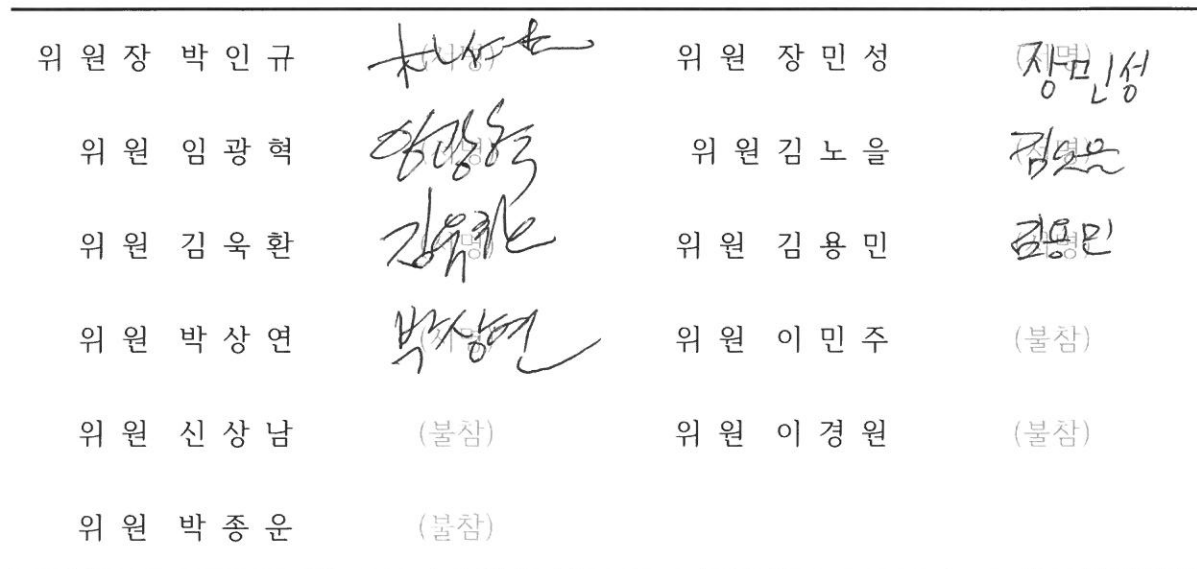 위 원 장 박 인 규 (서명) 위 원 장 민 성 (서명) 장민성
위 원 임 광 혁 (서명) 임광혁 위 원 김 노 을 (서명) 김노을
위 원 김 욱 환 (서명) 김욱환 위 원 김 용 민 (서명) 김용민
위 원 박 상 연 (서명) 박상연 위 원 이 민 주 (불참)
위 원 신 상 남 (불참) 위 원 이 경 원 (불참)
위 원 박 종 운 (불참)